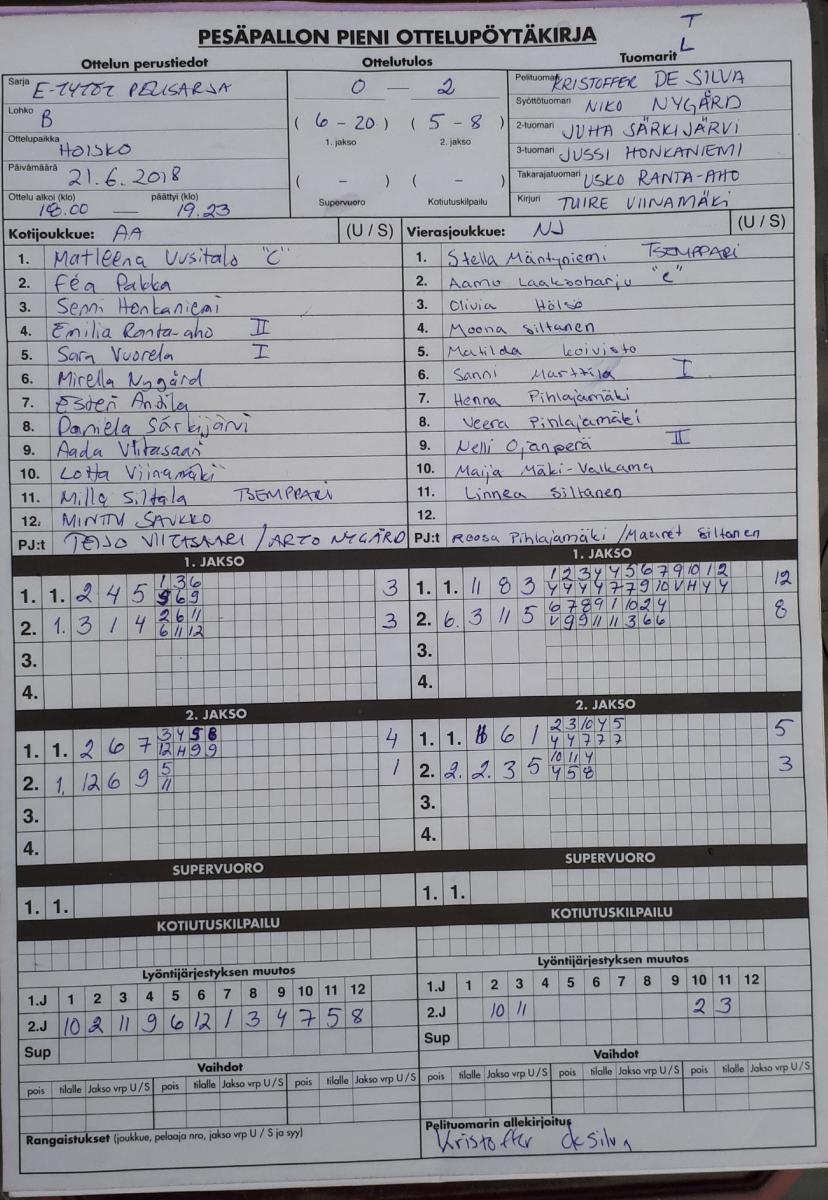 T
L
PESÄPALLON PIENI OTTELUPÖYTÄKIRJA
Ottelun perustiedot
Sarja E-TYTÖT PELISARJA
Lohko B
Ottelupaikka HOISKO
Päivämäärä 21.6.2018
Ottelu alkoi (klo) päättyi (klo)
18.00 — 19.23
Ottelutulos
0 — 2
( 6 - 20 ) ( 5 - 8 )
1. jakso 2. jakso
( - ) ( - )
Supervuoro Kotiutuskilpailu
Tuomarit
Pelituomari KRISTOFFER DE SILVA
Syöttötuomari NIKO NYGÅRD
2-tuomari JUHA SÄRKIJÄRVI
3-tuomari JUSSI HONKANIEMI
Takarajatuomari USKO RANTA-AHO
Kirjuri TUIRE VIINAMÄKI
Kotijoukkue: AA (U / S)
1. Matleena Uusitalo "C"
2. Féa Pakka
3. Senni Honkaniemi
4. Emilia Ranta-aho II
5. Sara Vuorela I
6. Mirella Nygård
7. Esteri Anttila
8. Daniela Särkijärvi
9. Aada Viitasaari
10. Lotta Viinamäki
11. Milla Siltala TSEMPPARI
12. MINTTU SAUKKO
PJ:t TEIJO VIITASAARI / ARTO NYGÅRD
Vierasjoukkue: NJ (U / S)
1. Stella Mäntyniemi TSEMPPARI
2. Aamu Laaksoharju "C"
3. Olivia Hölsö
4. Moona Siltanen
5. Matilda Koivisto
6. Sanni Marttila I
7. Henna Pihlajamäki
8. Veera Pihlajamäki
9. Nelli Ojanperä II
10. Maija Mäki-Valkama
11. Linnea Siltanen
12.
PJ:t Roosa Pihlajamäki / Maaret Siltanen
1. JAKSO
1 3 6
1. 1. 2 4 5 9 6 9 3
2 6 11
2. 1. 3 1 4 6 11 12 3
3.
4.
2. JAKSO
3 4 5 8
1. 1. 2 6 7 12 H 9 9 4
5
2. 1. 12 6 9 11 1
3.
4.
SUPERVUORO
1. 1.
KOTIUTUSKILPAILU
Lyöntijärjestyksen muutos
1.J 1 2 3 4 5 6 7 8 9 10 11 12
2.J 10 2 11 9 6 12 1 3 4 7 5 8
Sup
Vaihdot
pois tilalle Jakso vrp U / S pois tilalle Jakso vrp U / S pois tilalle Jakso vrp U / S
Rangaistukset (joukkue, pelaaja nro, jakso vrp U / S ja syy)
1. JAKSO
1 2 3 4 4 5 6 7 9 10 12
1. 1. 11 8 3 4 4 4 4 7 7 9 10 V H 4 4 12
6 7 8 9 1 10 2 4
2. 6. 3 11 5 V 9 9 11 11 3 6 6 8
3.
4.
2. JAKSO
2 3 10 4 5
1. 1. 6 1 4 4 7 7 7 5
10 11 4
2. 2. 2. 3 5 4 5 8 3
3.
4.
SUPERVUORO
1. 1.
KOTIUTUSKILPAILU
Lyöntijärjestyksen muutos
1.J 1 2 3 4 5 6 7 8 9 10 11 12
2.J 10 11 2 3
Sup
Vaihdot
pois tilalle Jakso vrp U / S pois tilalle Jakso vrp U / S pois tilalle Jakso vrp U / S
Pelituomarin allekirjoitus
Kristoffer de Silva